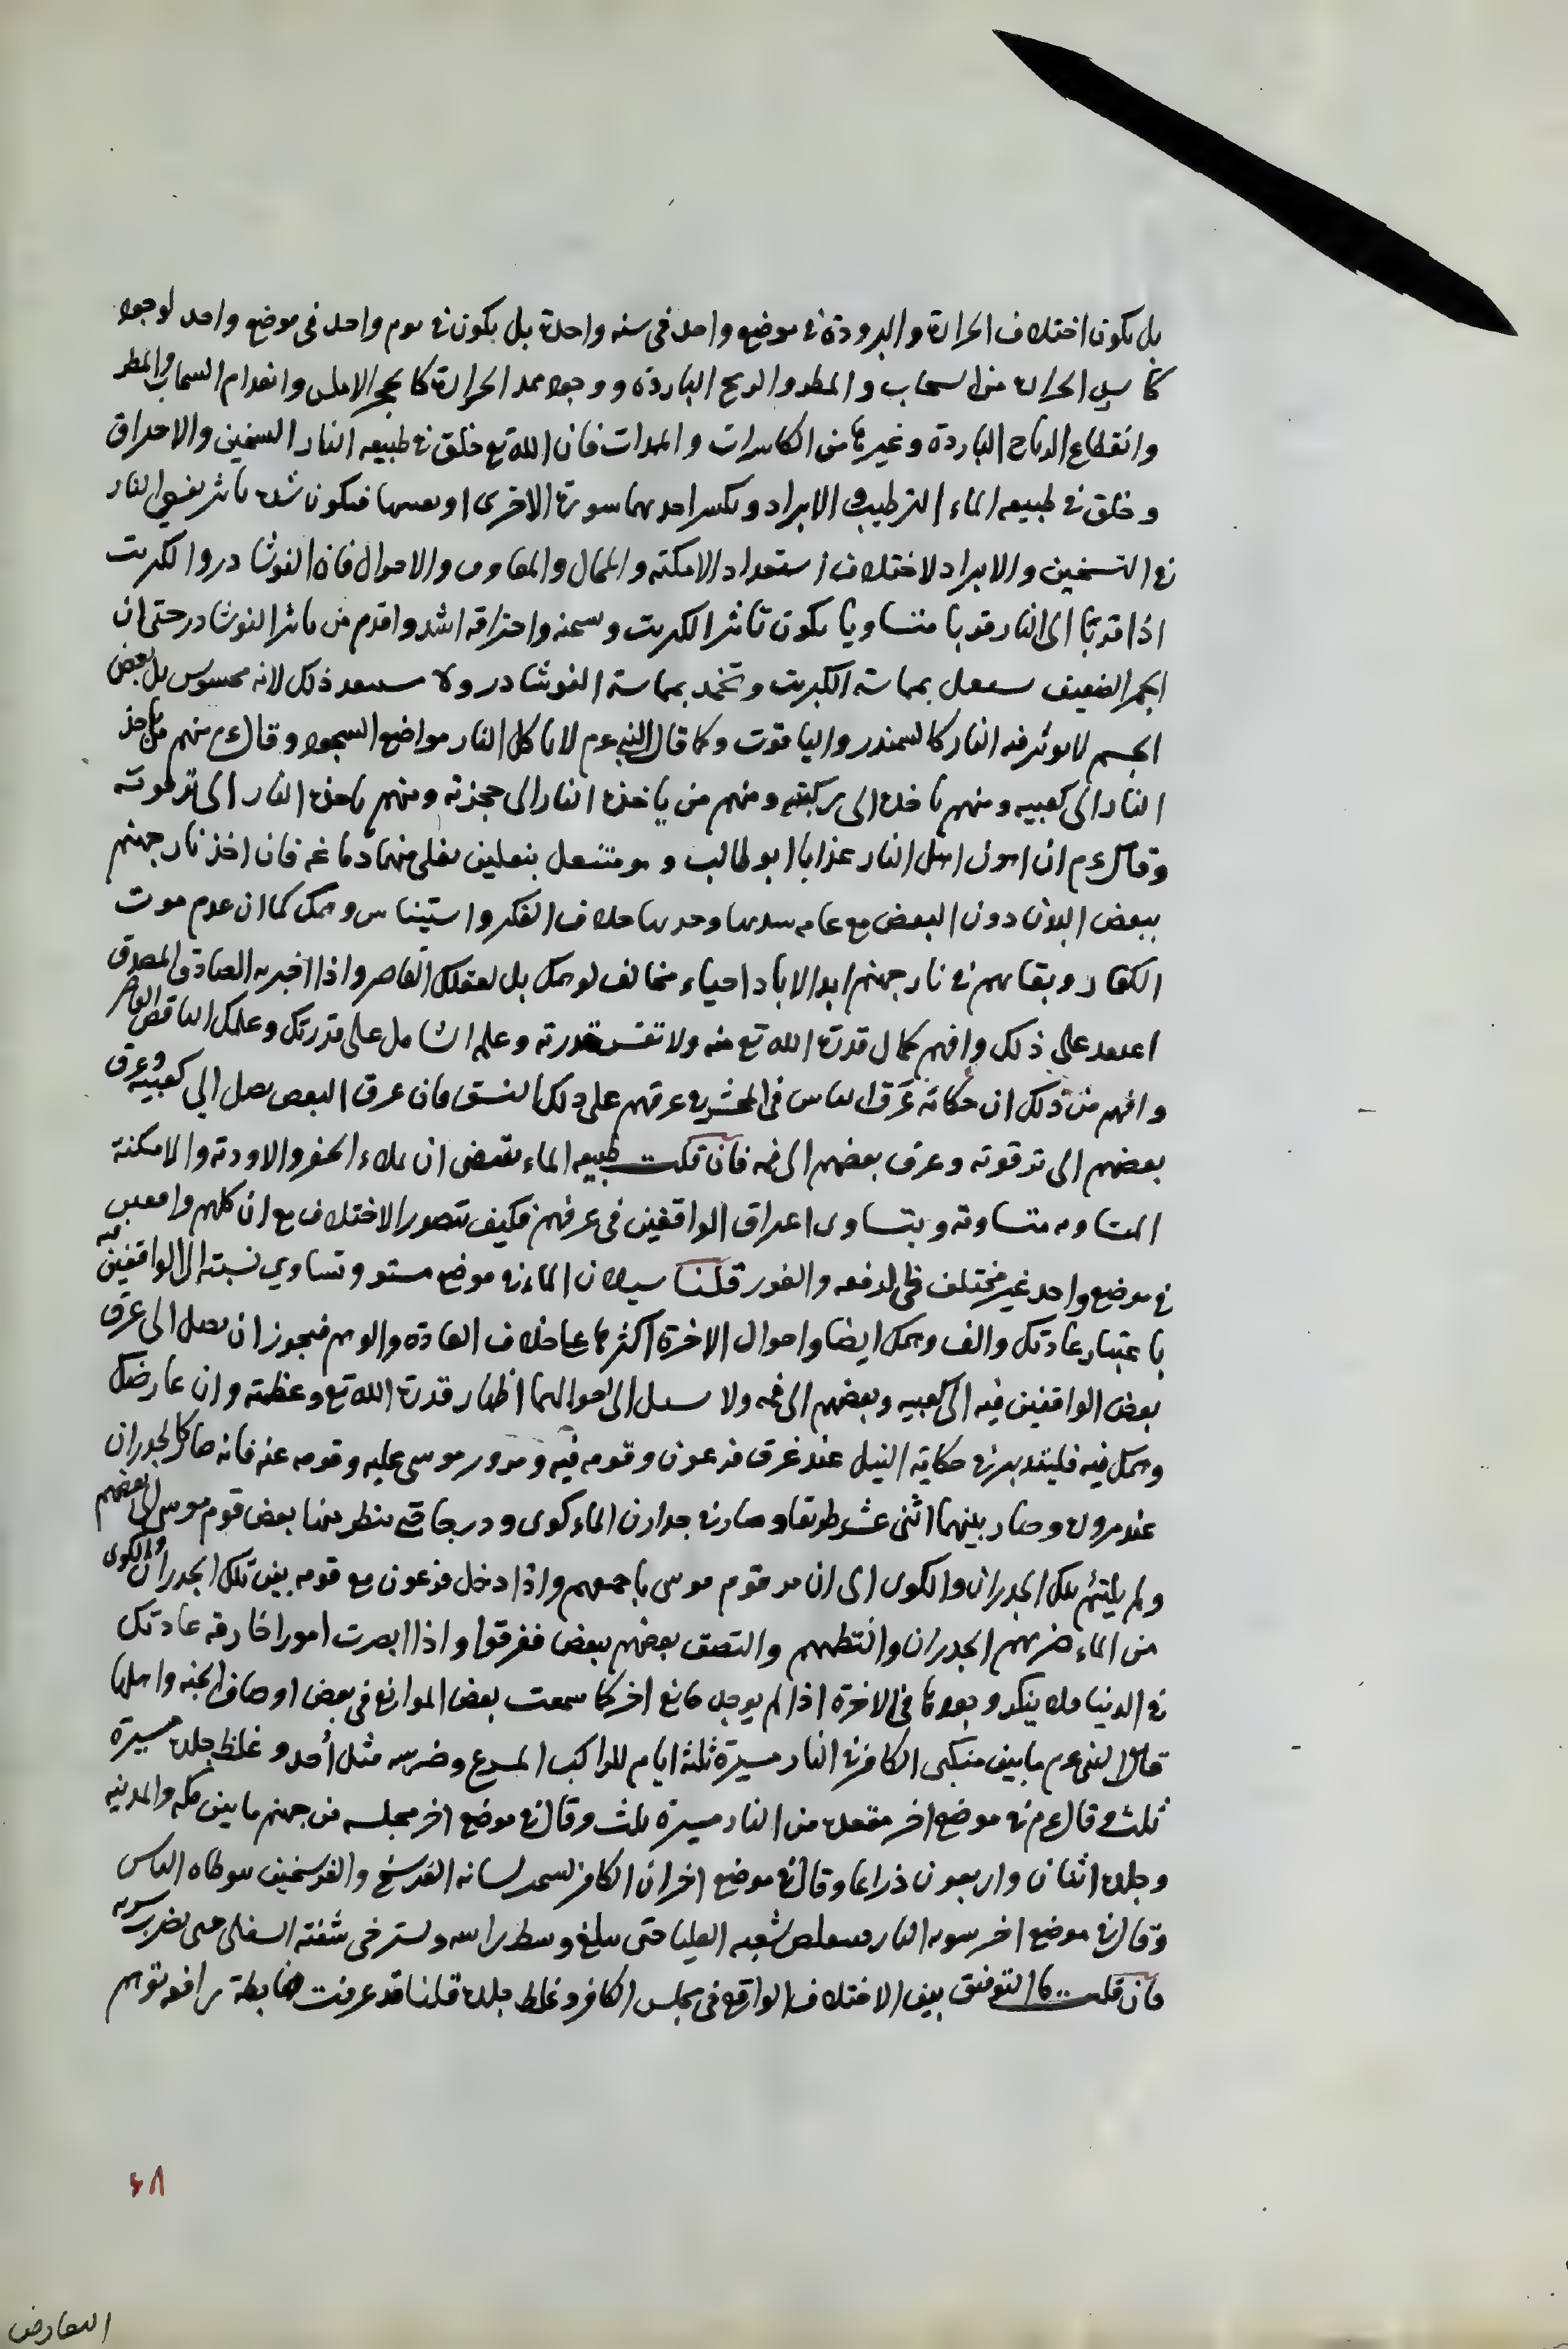 بل يكون اختلاف الحرارة والبرودة فى موضع واحد فى سنه واحدة بل يكون فى يوم واحد فى موضع واحد لوجود
كاسر الحرارة من السحاب والمطر والريح الباردة ووجود ممد الحرارة كالحجر الاملس وانعدام السحاب والمطر
وانقطاع الرياح الباردة وغيرها من الكاسرات والممدات فان الله تع خلق فى طبيعه النار السخين والاحراق
وخلق فى طبيعه الماء الترطيب والابراد ويكسر احديهما سورة الاخرى او يعينها فيكون شدة تأثر بعض النار
فى التسخين والابراد لاختلاف استعداد الامكنه والمحال والمعاون والاحوال فان النوشادر والكبريت
اذا قربا الى النار قربا متساويا يكون تاثر الكبريت وسخنه واحتراقه اشد واقدم من تاثر النوشادر حتى ان
الجمر الضعيف يشتعل بمماسة الكبريت وتخمد بمماسة النوشادر ولا يستبعد ذلك لانه محسوس بل بعض
الجسم لا يوثر فيه النار كالسمندر والياقوت وكما قال النبي عم لا تاكل النار مواضع السجود وقال عم منهم من تاخذ
النار الى كعبيه ومنهم تاخذه الى ركبتيه ومنهم من ياخذه النار الى حجزته ومنهم تاخذه النار الى ترقوته
وقال عم ان اهون اهل النار عذابا ابو طالب وهو متنعل بنعلين يغلى منهما دماغه فان اخذ نار جهنم
ببعض البدن دون البعض مع خلاف الفكر واستيناس وهمك كما ان عدم موت
الكفار وبقائهم فى نار جهنم ابد الاباد احياء مخالف لوهمك بل لعقلك القاصر واذا اخبر به الصادق المصدق
اعتمد على ذلك وافهم كمال قدرة الله تع منه ولا تقس قدرته وعلمه الشامل على قدرتك وعلمك الناقص القاصر
وافهم من ذلك ان حكاية غرق الناس فى المحشر فى عرقهم على ذلك النسق فان عرق البعض يصل الي كعبيه وعرق
بعضهم الى ترقوته وعرق بعضهم الى فمه فان قلت طبيعه الماء يقتضى ان يملاء الحفر والاودية والامكنة
المتساويه متساوية وبتساوى اعراق الواقفين فى عرقهم فكيف يتصور الاختلاف مع ان كلهم واقفين
فى موضع واحد غير مختلف فى الرفعه والغور قلنا سيلان الماء فى موضع مستو وتساوي نسبته الى الواقفين فيه
باعتبار عادتك والف وهمك ايضا واحوال الاخرة اكثرها على خلاف العادة والوهم فيجوز ان يصل الى عرق
بعض الواقفين فيه الى كعبيه وبعضهم الى فمه ولا سبيل الى احوالهما اظهار قدرة الله تع وعظمته وان عارضك
وهمك فيه فليتدبر فى حكاية النيل عند غرق فرعون وقومه فيه ومرور موسى عليه وقومه عنه فانه صار كالجدران
عند مروره وصار بينهما اثنى عشر طريقا وصار فى جدارن الماء كوى ودرجات ينظر منها بعض قوم موسى الى بعضهم
ولم يلتئم تلك الجدران والكوى الى ان مر قوم موسى باجمعهم واذا دخل فرعون مع قومه بين تلك الجدران والكوى
من الماء ضربهم الجدران والتطمهم والتصق بعضهم ببعض فغرقوا واذا ابصرت امورا خارقه عادتك
فى الدنيا فلا ينكر وجودها فى الاخرة اذا لم يوجد مانع اخر كما سمعت بعض الموانع فى بعض اوصاف الجنه واهلها
قال النبى عم ما بين منكبى الكافر فى النار مسيرة ثلثة ايام للراكب المسرع وضرسه مثل أحد وغلظ جلده مسيرة
ثلث وقال عم فى موضع اخر مقعده من النار مسيرة ثلث وقال فى موضع اخر مجلسه من جهنم ما بين مكه والمدينه
وجلده اثنان واربعون ذراعا وقال فى موضع اخر ان الكافر ليسحب لسانه الفرسخ والفرسخين يتوطاه الناس
وقال فى موضع اخر تشويه النار فيتقلص شفته العليا حتى يبلغ وسط راسه ويسترخى شفته السفلى حتى يضرب سرته
فان قلت ما التوفيق بين الاختلاف الواقع فى مجلس الكافر وغلظ جلده قلنا قد عرفت ضابطة رافعه توهم
٦٨
التعارض